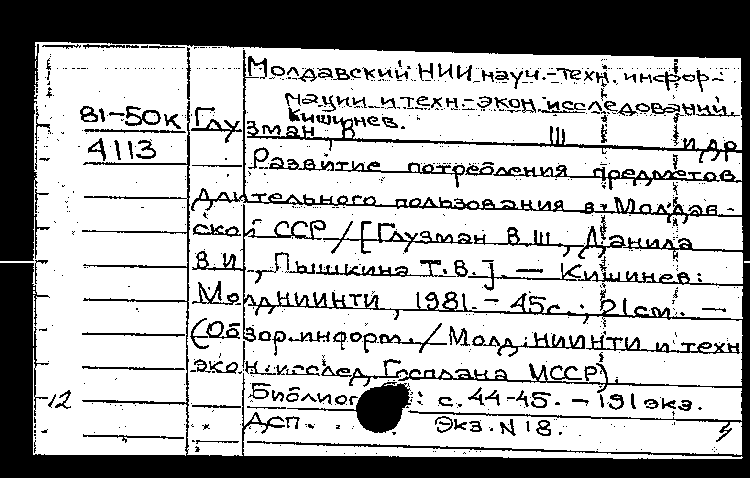 Молдавский НИИ науч.-техн. инфор-
мации и техн.-экон исследований.
Кишинев.
81-50к Глузман, В Ш и др
4113 Развитие потребления предметов
длительного пользования в Молдав-
ской ССР / [Глузман В.Ш., Данила
В.И., Пышкина Т.В.]. — Кишинев:
МолдНИИНТИ, 1981. - 45с.; 21см. —
(Обзор. информ. / Молд. НИИНТИ и техн
экон. исслед. Госплана МССР).
-12 Библиог : с. 44-45. - 191 экз.
Дсп. Экз. N 18.